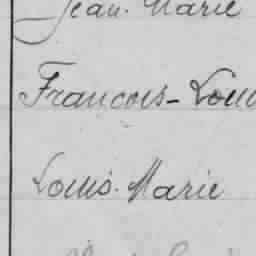 Jean-Marie
Francois-Loui
Louis-Marie